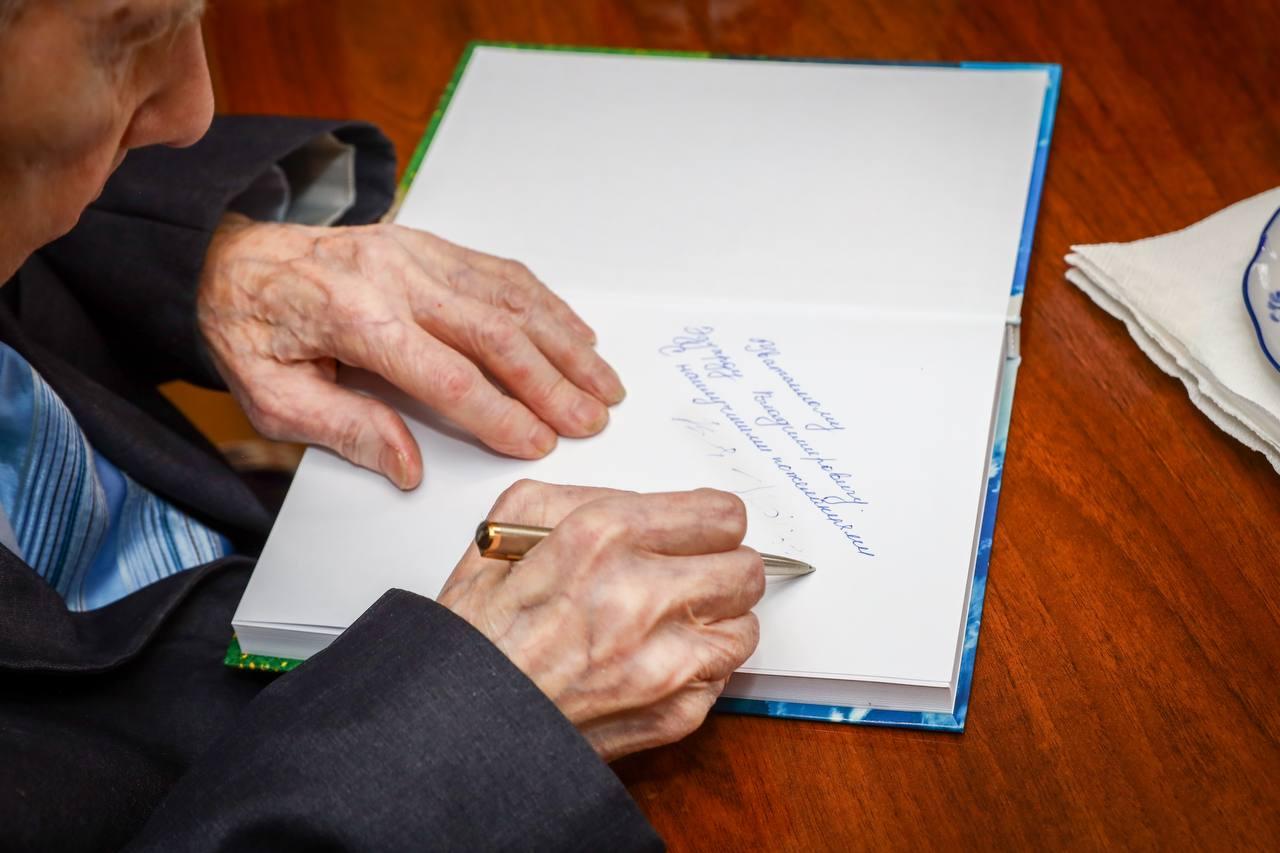 Уважаемому
Эдуарду Владимировичу.
С наилучшими пожеланиями